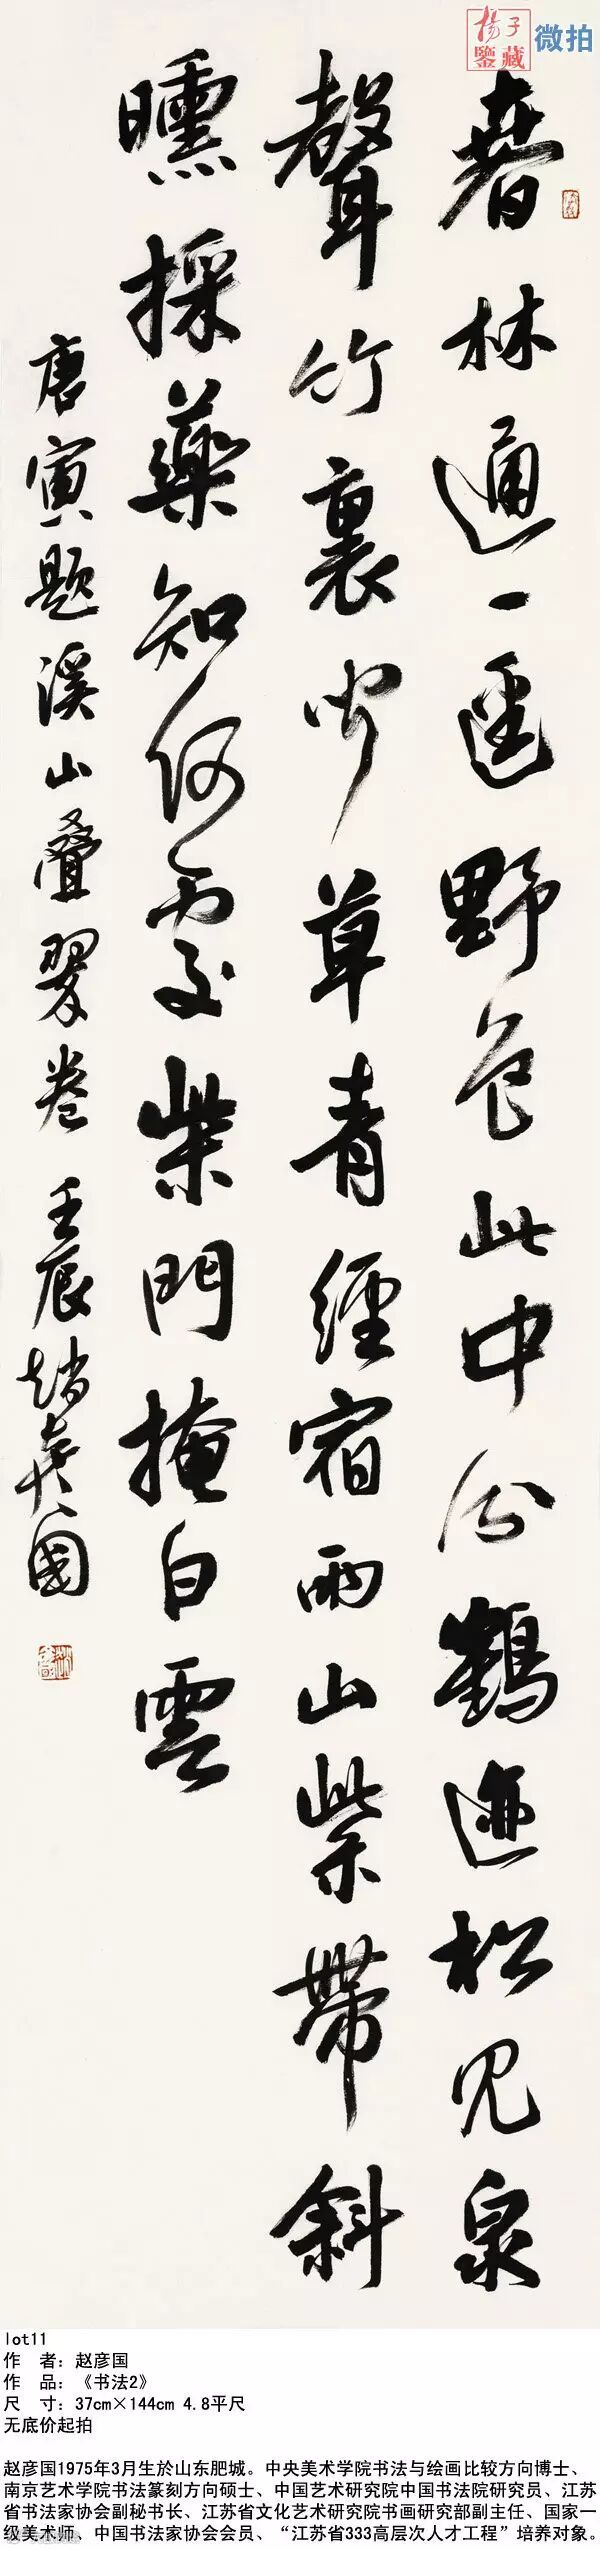 揚子
鑒藏
微拍
春林通一逕野色此中分鶴迹松見泉
聲竹裏聞草青經宿雨山紫帶斜
曛採藥知何處柴門掩白雲
唐寅题溪山叠翠卷 壬辰趙彥國
lot11
作 者：赵彦国
作 品：《书法2》
尺 寸：37cm×144cm 4.8平尺
无底价起拍
赵彦国1975年3月生於山东肥城。中央美术学院书法与绘画比较方向博士、
南京艺术学院书法篆刻方向硕士、中国艺术研究院中国书法院研究员、江苏
省书法家协会副秘书长、江苏省文化艺术研究院书画研究部副主任、国家一
级美术师、中国书法家协会会员、“江苏省333高层次人才工程”培养对象。